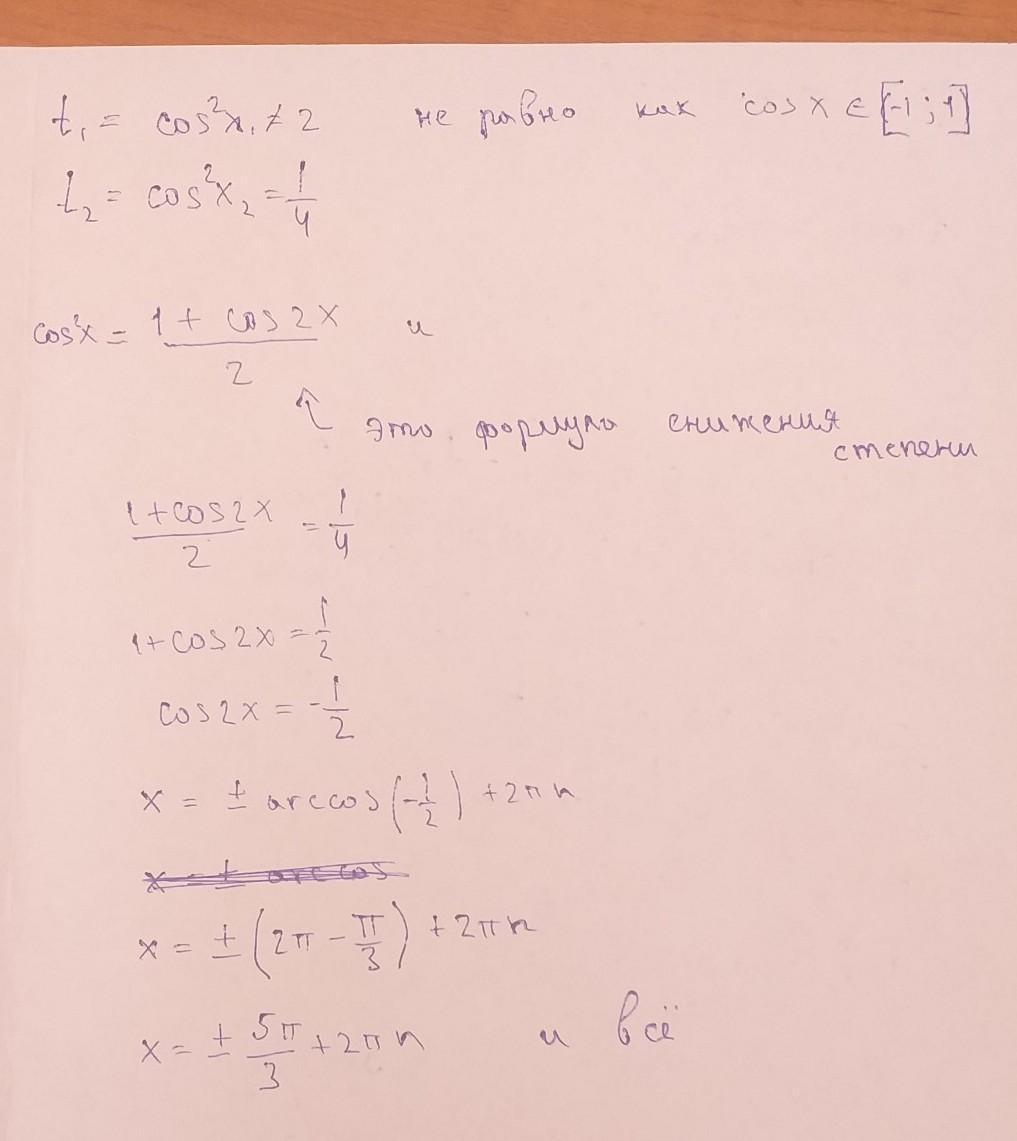 t₁ = cos²x₁ ≠ 2 не равно как cos x ∈ [-1; 1]
t₂ = cos²x₂ = 1/4
cos²x = (1 + cos2x)/2 и
↑ это формула снижения
степени
(1 + cos2x)/2 = 1/4
1 + cos2x = 1/2
cos2x = -1/2
x = ± arccos(-1/2) + 2πn
x = ± arccos
x = ± (2π - π/3) + 2πn
x = ± 5π/3 + 2πn и всё